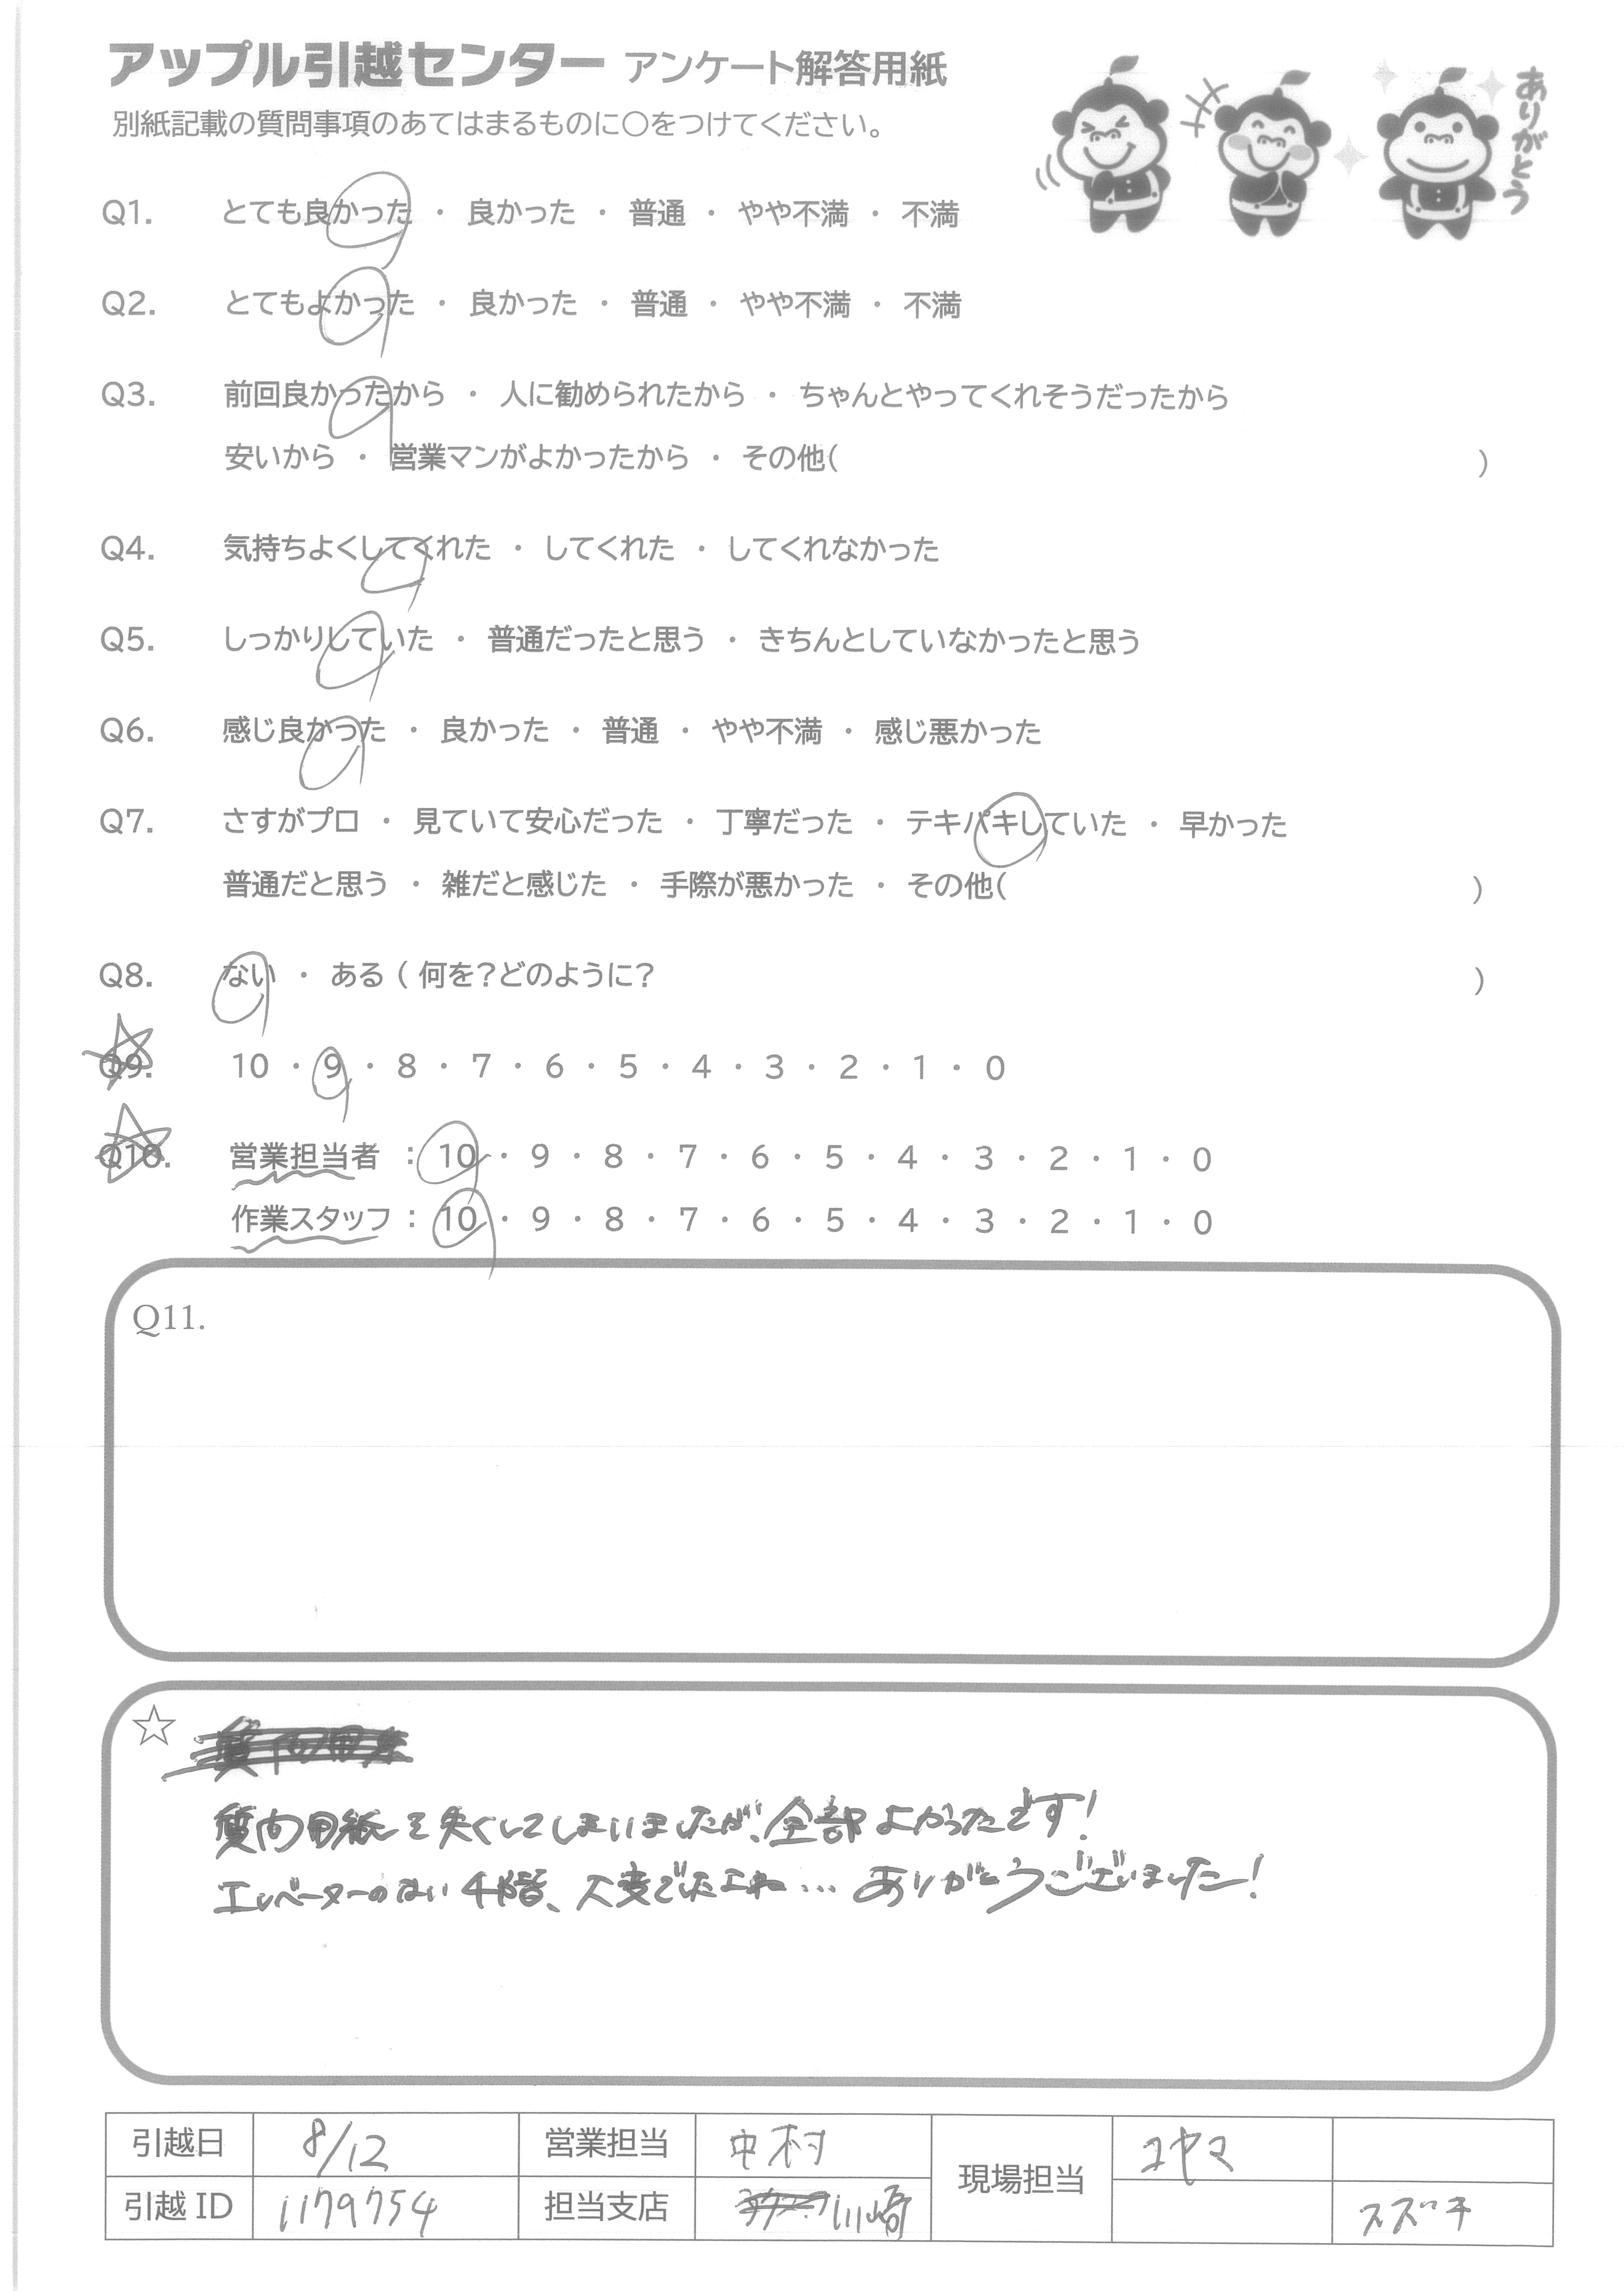 アップル引越センター アンケート解答用紙
別紙記載の質問事項のあてはまるものに○をつけてください。
ありがとう
Q1. とても良かった ・ 良かった ・ 普通 ・ やや不満 ・ 不満
Q2. とてもよかった ・ 良かった ・ 普通 ・ やや不満 ・ 不満
Q3. 前回良かったから ・ 人に勧められたから ・ ちゃんとやってくれそうだったから
安いから ・ 営業マンがよかったから ・ その他( )
Q4. 気持ちよくしてくれた ・ してくれた ・ してくれなかった
Q5. しっかりしていた ・ 普通だったと思う ・ きちんとしていなかったと思う
Q6. 感じ良かった ・ 良かった ・ 普通 ・ やや不満 ・ 感じ悪かった
Q7. さすがプロ ・ 見ていて安心だった ・ 丁寧だった ・ テキパキしていた ・ 早かった
普通だと思う ・ 雑だと感じた ・ 手際が悪かった ・ その他( )
Q8. ない ・ ある ( 何を?どのように? )
Q9. 10 ・ 9 ・ 8 ・ 7 ・ 6 ・ 5 ・ 4 ・ 3 ・ 2 ・ 1 ・ 0
Q10. 営業担当者 : 10 ・ 9 ・ 8 ・ 7 ・ 6 ・ 5 ・ 4 ・ 3 ・ 2 ・ 1 ・ 0
作業スタッフ : 10 ・ 9 ・ 8 ・ 7 ・ 6 ・ 5 ・ 4 ・ 3 ・ 2 ・ 1 ・ 0
Q11.
☆
質問用紙を失くしてしまいましたが、全部よかったです!
エレベーターのない4階、大変でしたよね… ありがとうございました!
引越日 8/12 営業担当 中村 現場担当 コヤマ
引越ID 1179754 担当支店 川崎 スズキ